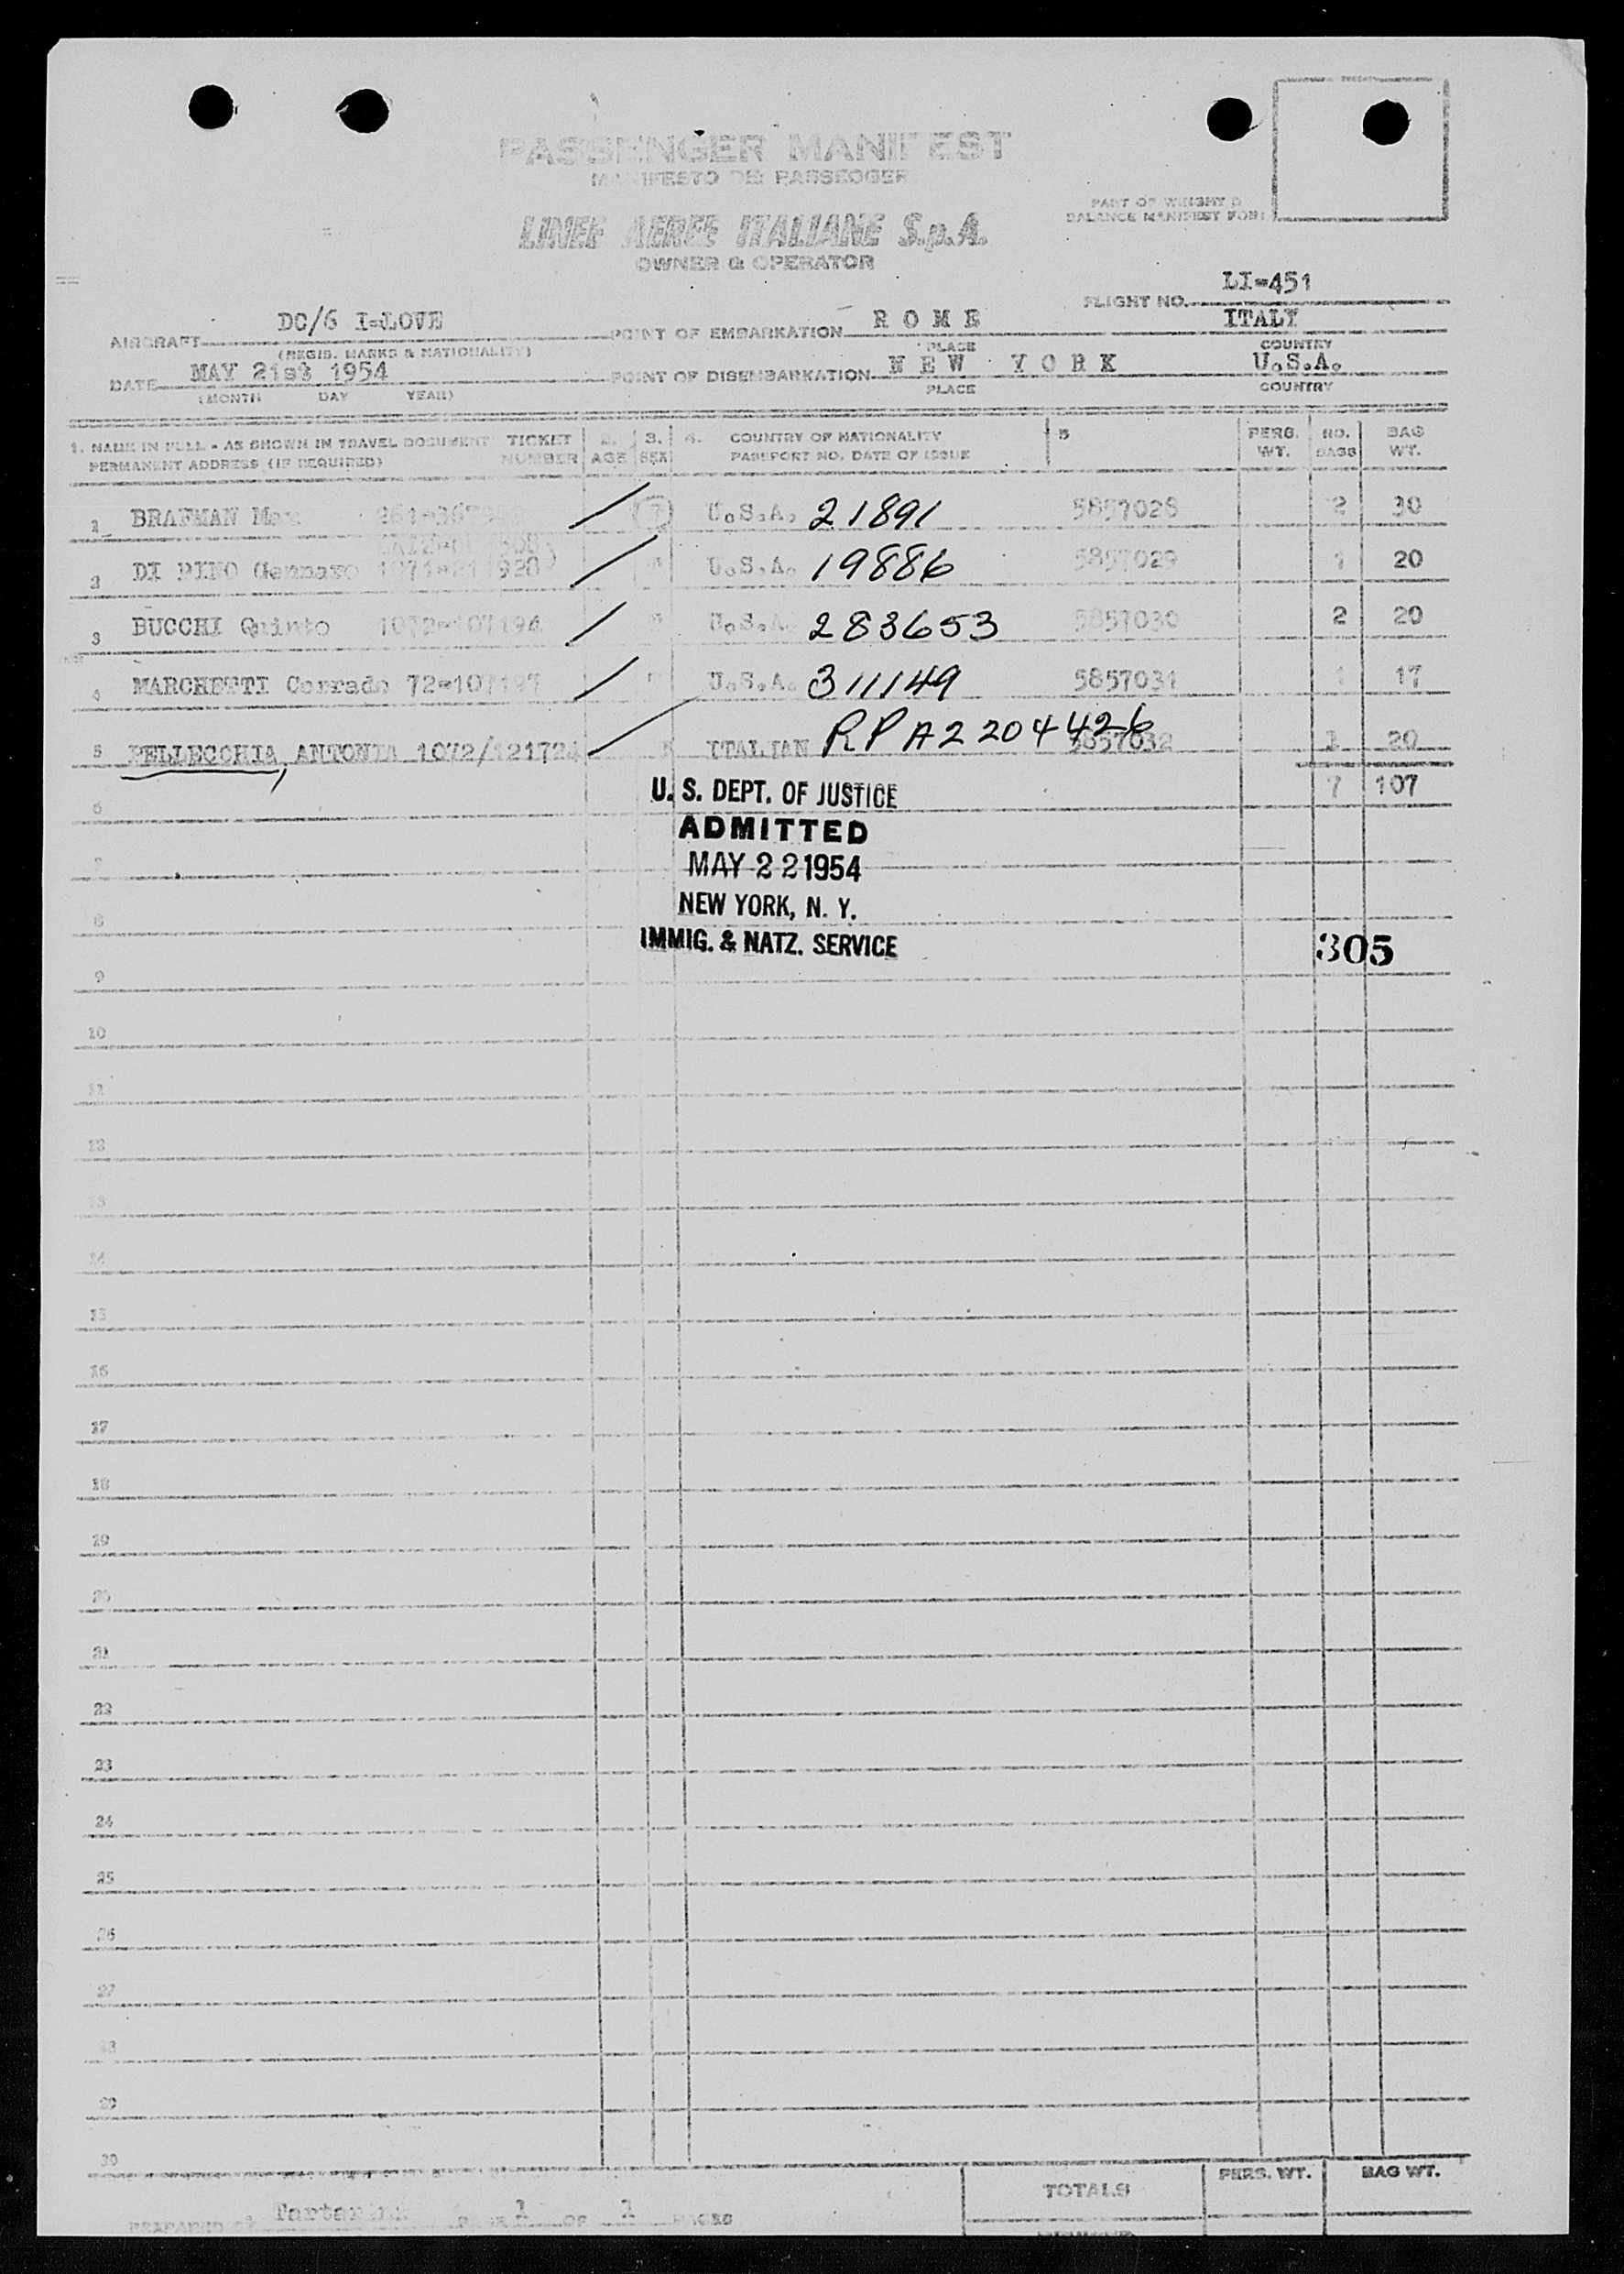 PASSENGER MANIFEST
MANIFESTO DEI PASSEGGERI
LINEE AEREE ITALIANE S.p.A.
OWNER & OPERATOR
PART OF WEIGHT &
BALANCE MANIFEST FOR:
FLIGHT NO. LI-451
AIRCRAFT DC/6 I-LOVE POINT OF EMBARKATION R O M E ITALY
(REGIS. MARKS & NATIONALITY) PLACE COUNTRY
DATE MAY 21st 1954 POINT OF DISEMBARKATION N E W Y O R K U.S.A.
(MONTH DAY YEAR) PLACE COUNTRY
1. NAME IN FULL - AS SHOWN IN TRAVEL DOCUMENT TICKET 2. 3. 4. COUNTRY OF NATIONALITY 5 PERS. NO. BAG
PERMANENT ADDRESS (IF REQUIRED) NUMBER AGE SEX PASSPORT NO. DATE OF ISSUE WT. BAGS WT.
1 BRAFMAN Max U.S.A. 21891 5857028 2 30
2 DI PINO Gennaro U.S.A. 19886 5857029 1 20
3 BUCCHI Quinto 1072-107194 U.S.A. 283653 5857030 2 20
4 MARCHETTI Corrado 72-107197 U.S.A. 311149 5857031 1 17
5 PELLECCHIA, ANTONIA 1072/121724 ITALIAN RP A2204426 5857032 1 20
6 7 107
U. S. DEPT. OF JUSTICE
ADMITTED
7 MAY 22 1954
8 NEW YORK, N. Y.
IMMIG. & NATZ. SERVICE 305
9
10
11
12
13
14
15
16
17
18
19
20
21
22
23
24
25
26
27
28
29
30
PERS. WT. BAG WT.
TOTALS
PREPARED BY PAGE 1 OF 1 PAGES